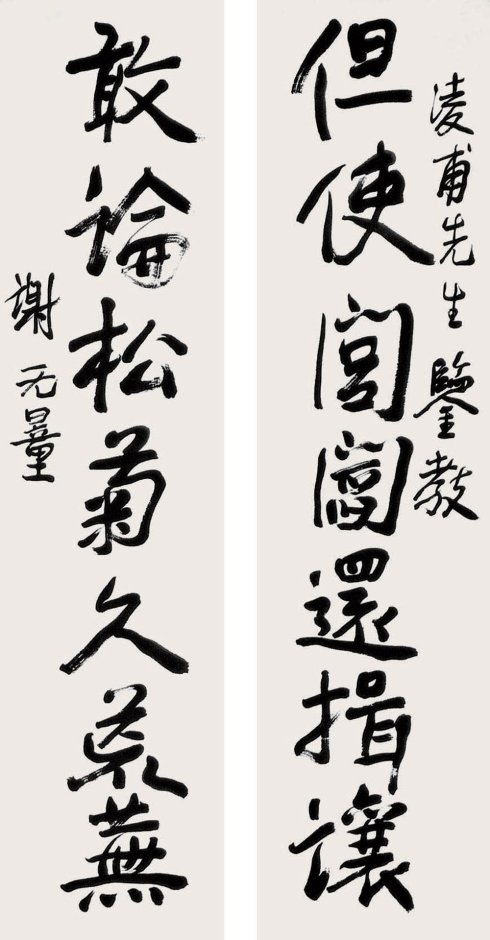 凌甫先生鑒教
但使閭閻還揖讓
敢論松菊久荒蕪
謝无量